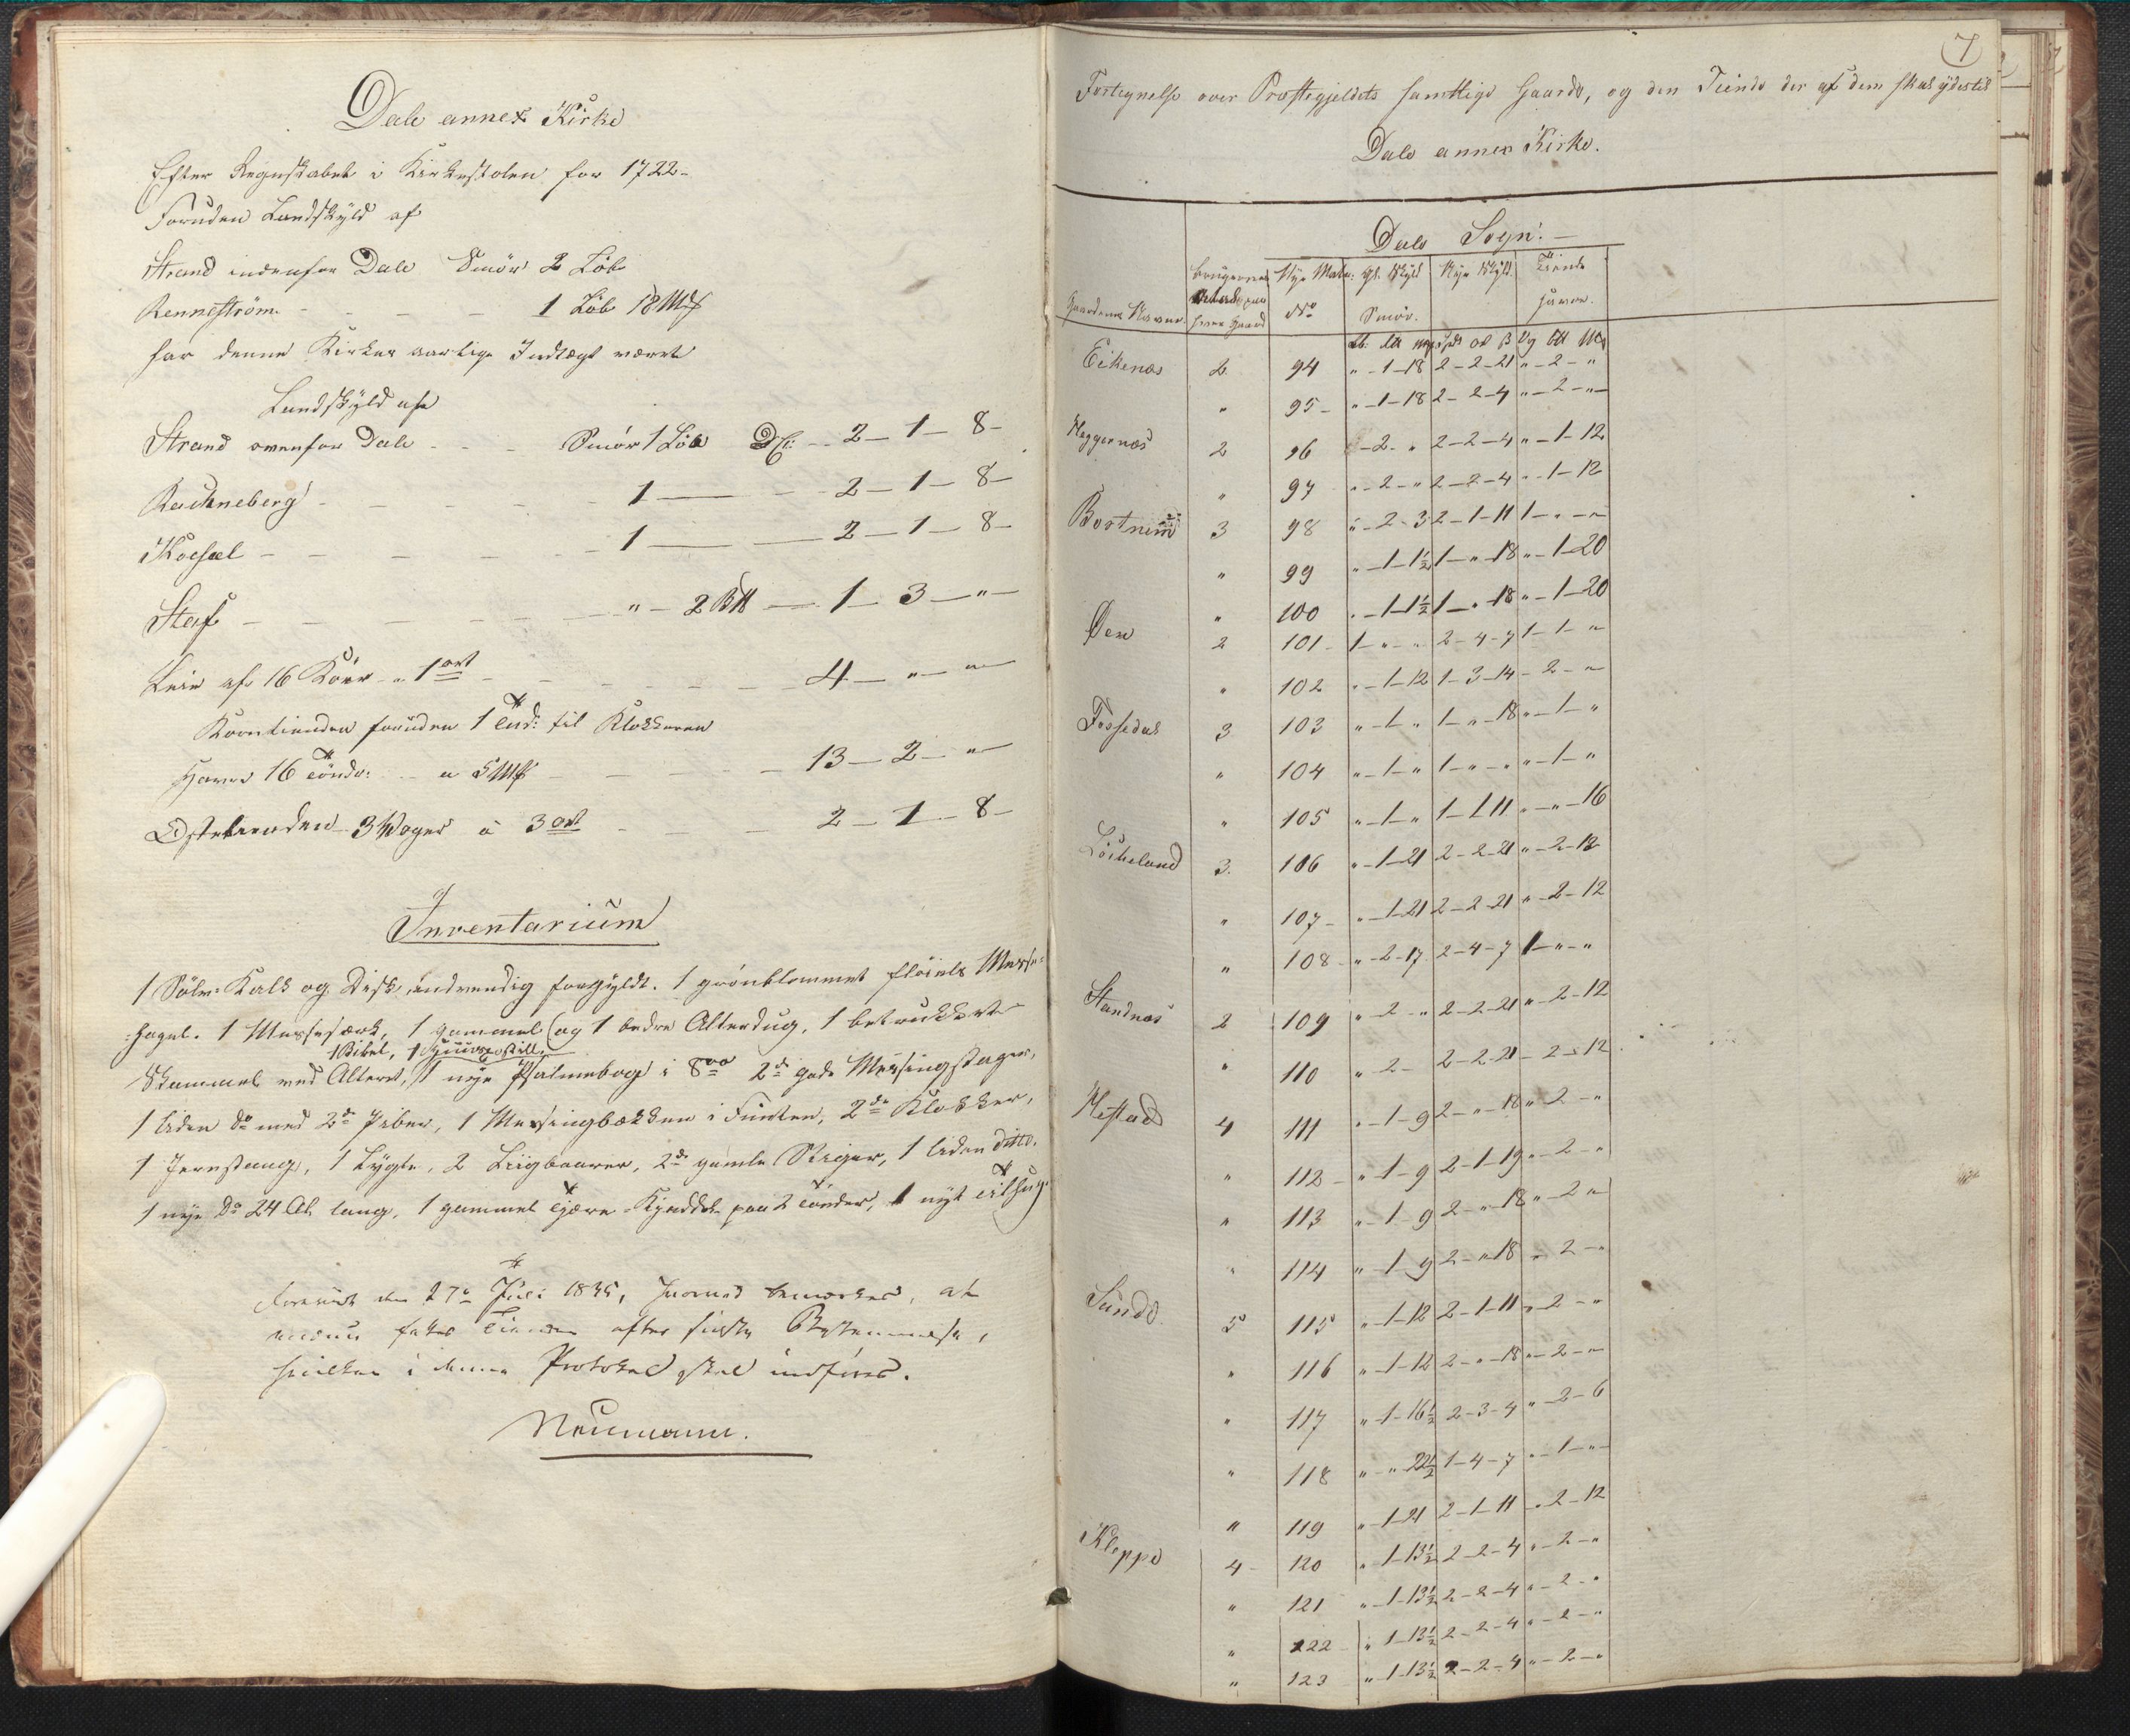 Dale annex Kirke
Efter Regnskabet i Kirkestolen for 1722-
Foruden Landskyld af
Strand indenfor Dale Smör 2 Löb
Renneström - - - 1 Löb 18 Mk
har denne Kirkes aarlige Indtægt været
Landskyld af
Strand ovenfor Dale - - - Smör 1 Löb 2-1-8-
Rachneberg - - - - 1 — 2-1-8-
- - - - 1 — 2-1-8-
Staf - - - - " - 2 — 1-3-"-
Leie af 16 Köer - " 1 ort - - - 4-"-"-
Korntienden foruden 1 Tnd: til Klokkeren
Havre 16 Tönder a 5 Mk - - - 13-2-"-
Ostetienden 3 Woger à 3 ort - - - 2-1-8-
Inventarium
1 Sölv-Kalk og Disk indvendig forgyldt. 1 grönblommet flöiels Messe-
hagel. 1 Messesærk, 1 gammel (og 1 bedre Alterdug, 1 betrukket
1 Bibel, 1
Skammel ved Alteret, 1 nye Psalmebog i 8vo 2de gode Messingstager,
1 liden do med 2de Piber, 1 Messingbækken i Funten, 2de Klokker,
1 Jernstang, 1 Lygte, 2 Liigbaarer, 2de gamle Stiger, 1 liden ditto,
1 nye Do 24 Al. lang, 1 gammel Tjære-Kjeddel paa 2 Tönder, 1 nyt
den 27de Juli 1835, hvorved bemærkes, at
Tienden efter sidste Bestemmelse,
hvilken i denne Protokol skal indföres.
Neumann.
7
Fortegnelse over Præstegjeldets samtlige Gaarde, og den Tiende der af dem skal ydes til
Dale annex Kirke.
Dale Sogn. -
Gaardenes Navne. Brugernes Antal paa hver Gaard Nye Matr. No Gl. Skyld Smör. Nye Skyld Tiende Havre.
Eikenæs 2 94 "-1-18 2-2-21 "-2-"
" 95- "-1-18 2-2-4 "-2-"-
Heggernæs 2 96 -2-" 2-2-4 "-1-12
" 97 "-2-" 2-2-4 "-1-12
Bortnem 3 98 "-2-3 2-1-11 1-"-"-
" 99 "-1-1½ 1-"-18 "-1-20
" 100 "-1-1½ 1-"-18 "-1-20
Öen 2 101- 1-"-" 2-4-7 1-1-"
" 102 "-1-12 1-3-14 -2-"-
Fossedal 3 103 "-1-" 1-"-18 "-1-"
" 104 "-1-" 1-"-" "-1-"
" 105 "-1-" 1-1-11 "-"-16
Löcheland 3. 106 "-1-21 2-2-21 "-2-12
" 107- "-1-21 2-2-21 "-2-12
" 108- "-2-17 2-4-7 1-"-"
Standnæs 2 109 "-2-" 2-2-21 "-2-12
" 110 "-2- 2-2-21 -2-12
Hestad 4 111 "-1-9 2-"-18 "-2-"
" 112- "-1-9 2-1-19 "-2-"
" 113 "-1-9 2-"-18 "-2-"
" 114 "-1-9 2-"-18 "-2-"
Sunde 5 115 "-1-12 2-1-11 "-2-"
" 116 "-1-12 2-"-18 "-2-"-
" 117 "-1-16½ 2-3-4 "-2-6
" 118 "-"-22½ 1-4-7 "-1-"-
" 119 "-1-21 2-1-11 "-2-12
Kleppe 4- 120 "-1-13½ 2-2-4 "-2-"
" 121 "-1-13½ 2-2-4 "-2-"
" 222- "-1-13½ 2-2-4 "-2-"
" 123 "-1-13½ 2-2-4 "-2-"